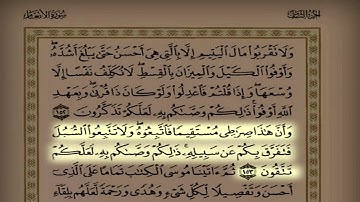 الجزء الثامن
سورة الأنعام
وَلَا تَقْرَبُوا۟ مَالَ ٱلْيَتِيمِ إِلَّا بِٱلَّتِى هِىَ أَحْسَنُ حَتَّىٰ يَبْلُغَ أَشُدَّهُۥ
وَأَوْفُوا۟ ٱلْكَيْلَ وَٱلْمِيزَانَ بِٱلْقِسْطِ لَا نُكَلِّفُ نَفْسًا إِلَّا
وُسْعَهَا وَإِذَا قُلْتُمْ فَٱعْدِلُوا۟ وَلَوْ كَانَ ذَا قُرْبَىٰ وَبِعَهْدِ
ٱللَّهِ أَوْفُوا۟ ذَٰلِكُمْ وَصَّىٰكُم بِهِۦ لَعَلَّكُمْ تَذَكَّرُونَ ١٥٢
وَأَنَّ هَٰذَا صِرَٰطِى مُسْتَقِيمًا فَٱتَّبِعُوهُ وَلَا تَتَّبِعُوا۟ ٱلسُّبُلَ
فَتَفَرَّقَ بِكُمْ عَن سَبِيلِهِۦ ذَٰلِكُمْ وَصَّىٰكُم بِهِۦ لَعَلَّكُمْ
تَتَّقُونَ ١٥٣ ثُمَّ ءَاتَيْنَا مُوسَى ٱلْكِتَٰبَ تَمَامًا عَلَى ٱلَّذِى
أَحْسَنَ وَتَفْصِيلًا لِّكُلِّ شَىْءٍ وَهُدًى وَرَحْمَةً لَّعَلَّهُم بِلِقَآءِ